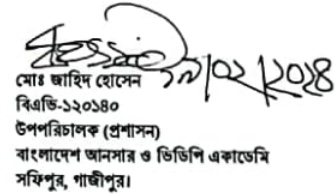 ১৮/০২/২০১৪
মোঃ জাহিদ হোসেন
বিএভি-১২০১৪০
উপপরিচালক (প্রশাসন)
বাংলাদেশ আনসার ও ভিডিপি একাডেমি
সফিপুর, গাজীপুর।